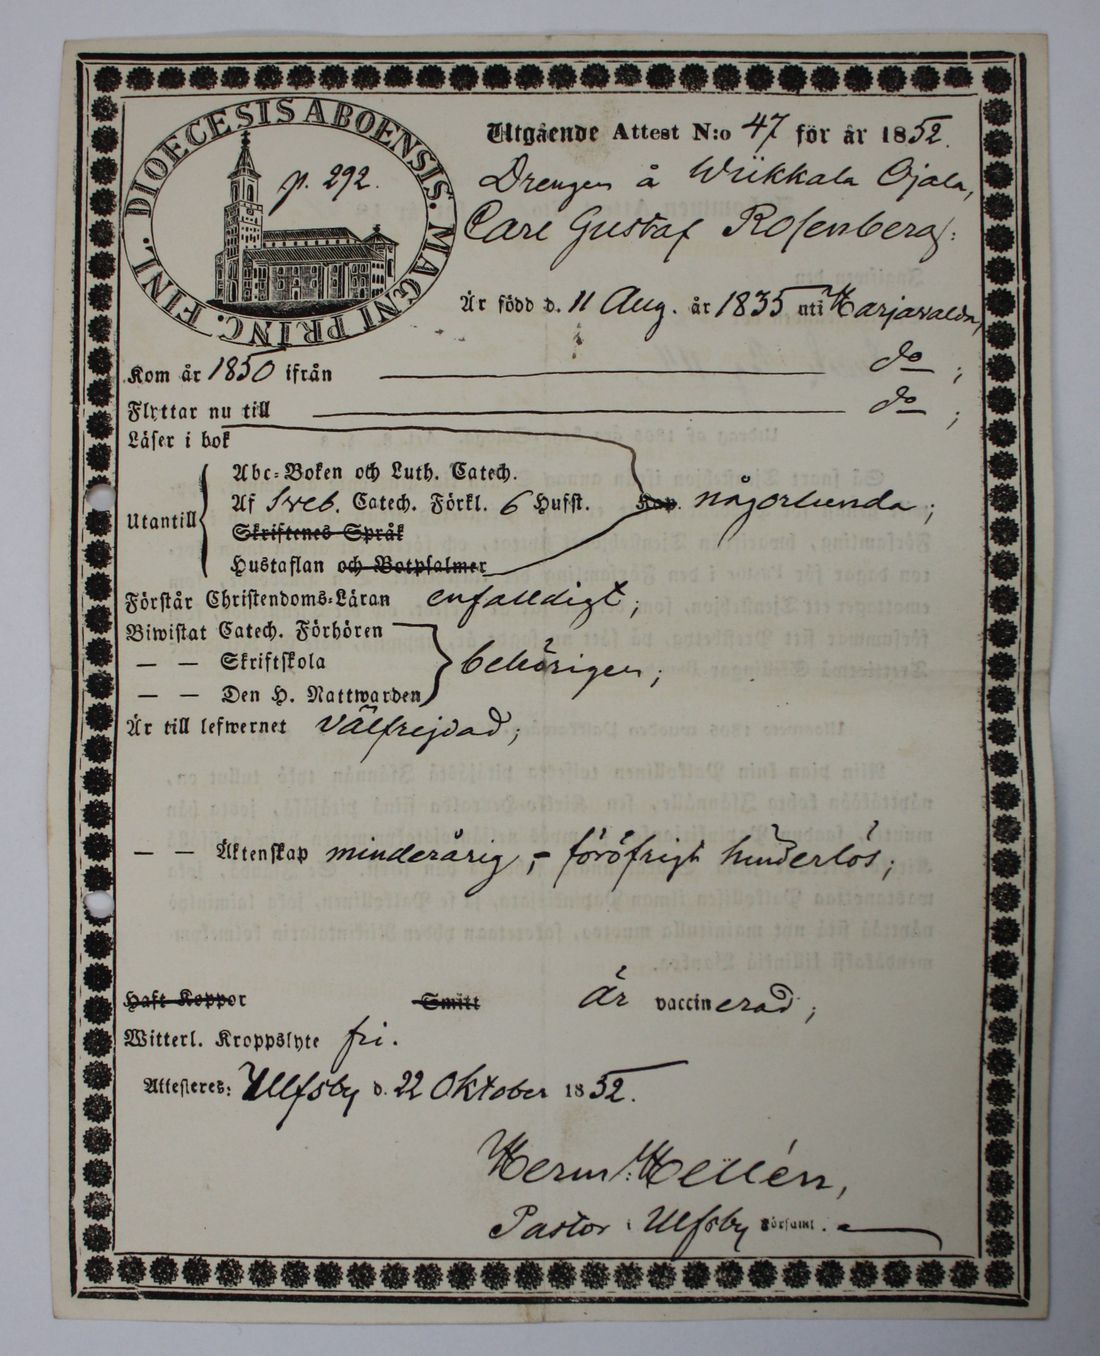 DIOECESIS ABOENSIS. MAGNI PRINC. FINL.
p. 292.
Utgående Attest N:o 47 för år 1852.
Drengen å Wiikkala Ojala,
Carl Gustaf Rosenberg:
Är född d. 11 Aug. år 1835 uti Harjavalda,
Kom år 1850 ifrån do ;
Flyttar nu till do ;
Läser i bok
Utantill
Abc-Boken och Luth. Catech.
Af Sveb. Catech. Förkl. 6 Hufst. Kap. någorlunda ;
Skriftenes Språk
Hustaflan och Botpsalmer
Förstår Christendoms-Läran enfalldigt ;
Biwistat Catech. Förhören
— — Skriftskola behörigen ;
— — Den H. Nattwarden
Är till lefwernet välfrejdad ;
— — Äktenskap minderårig, - föröfrigt hinderlös ;
Haft Koppor Smitt är vaccinerad ;
Witterl. Kroppslyte fri.
Attesteres: Ulfsby d. 22 Oktober 1852.
Herm: Hellén,
Pastor i Ulfsby Församl.